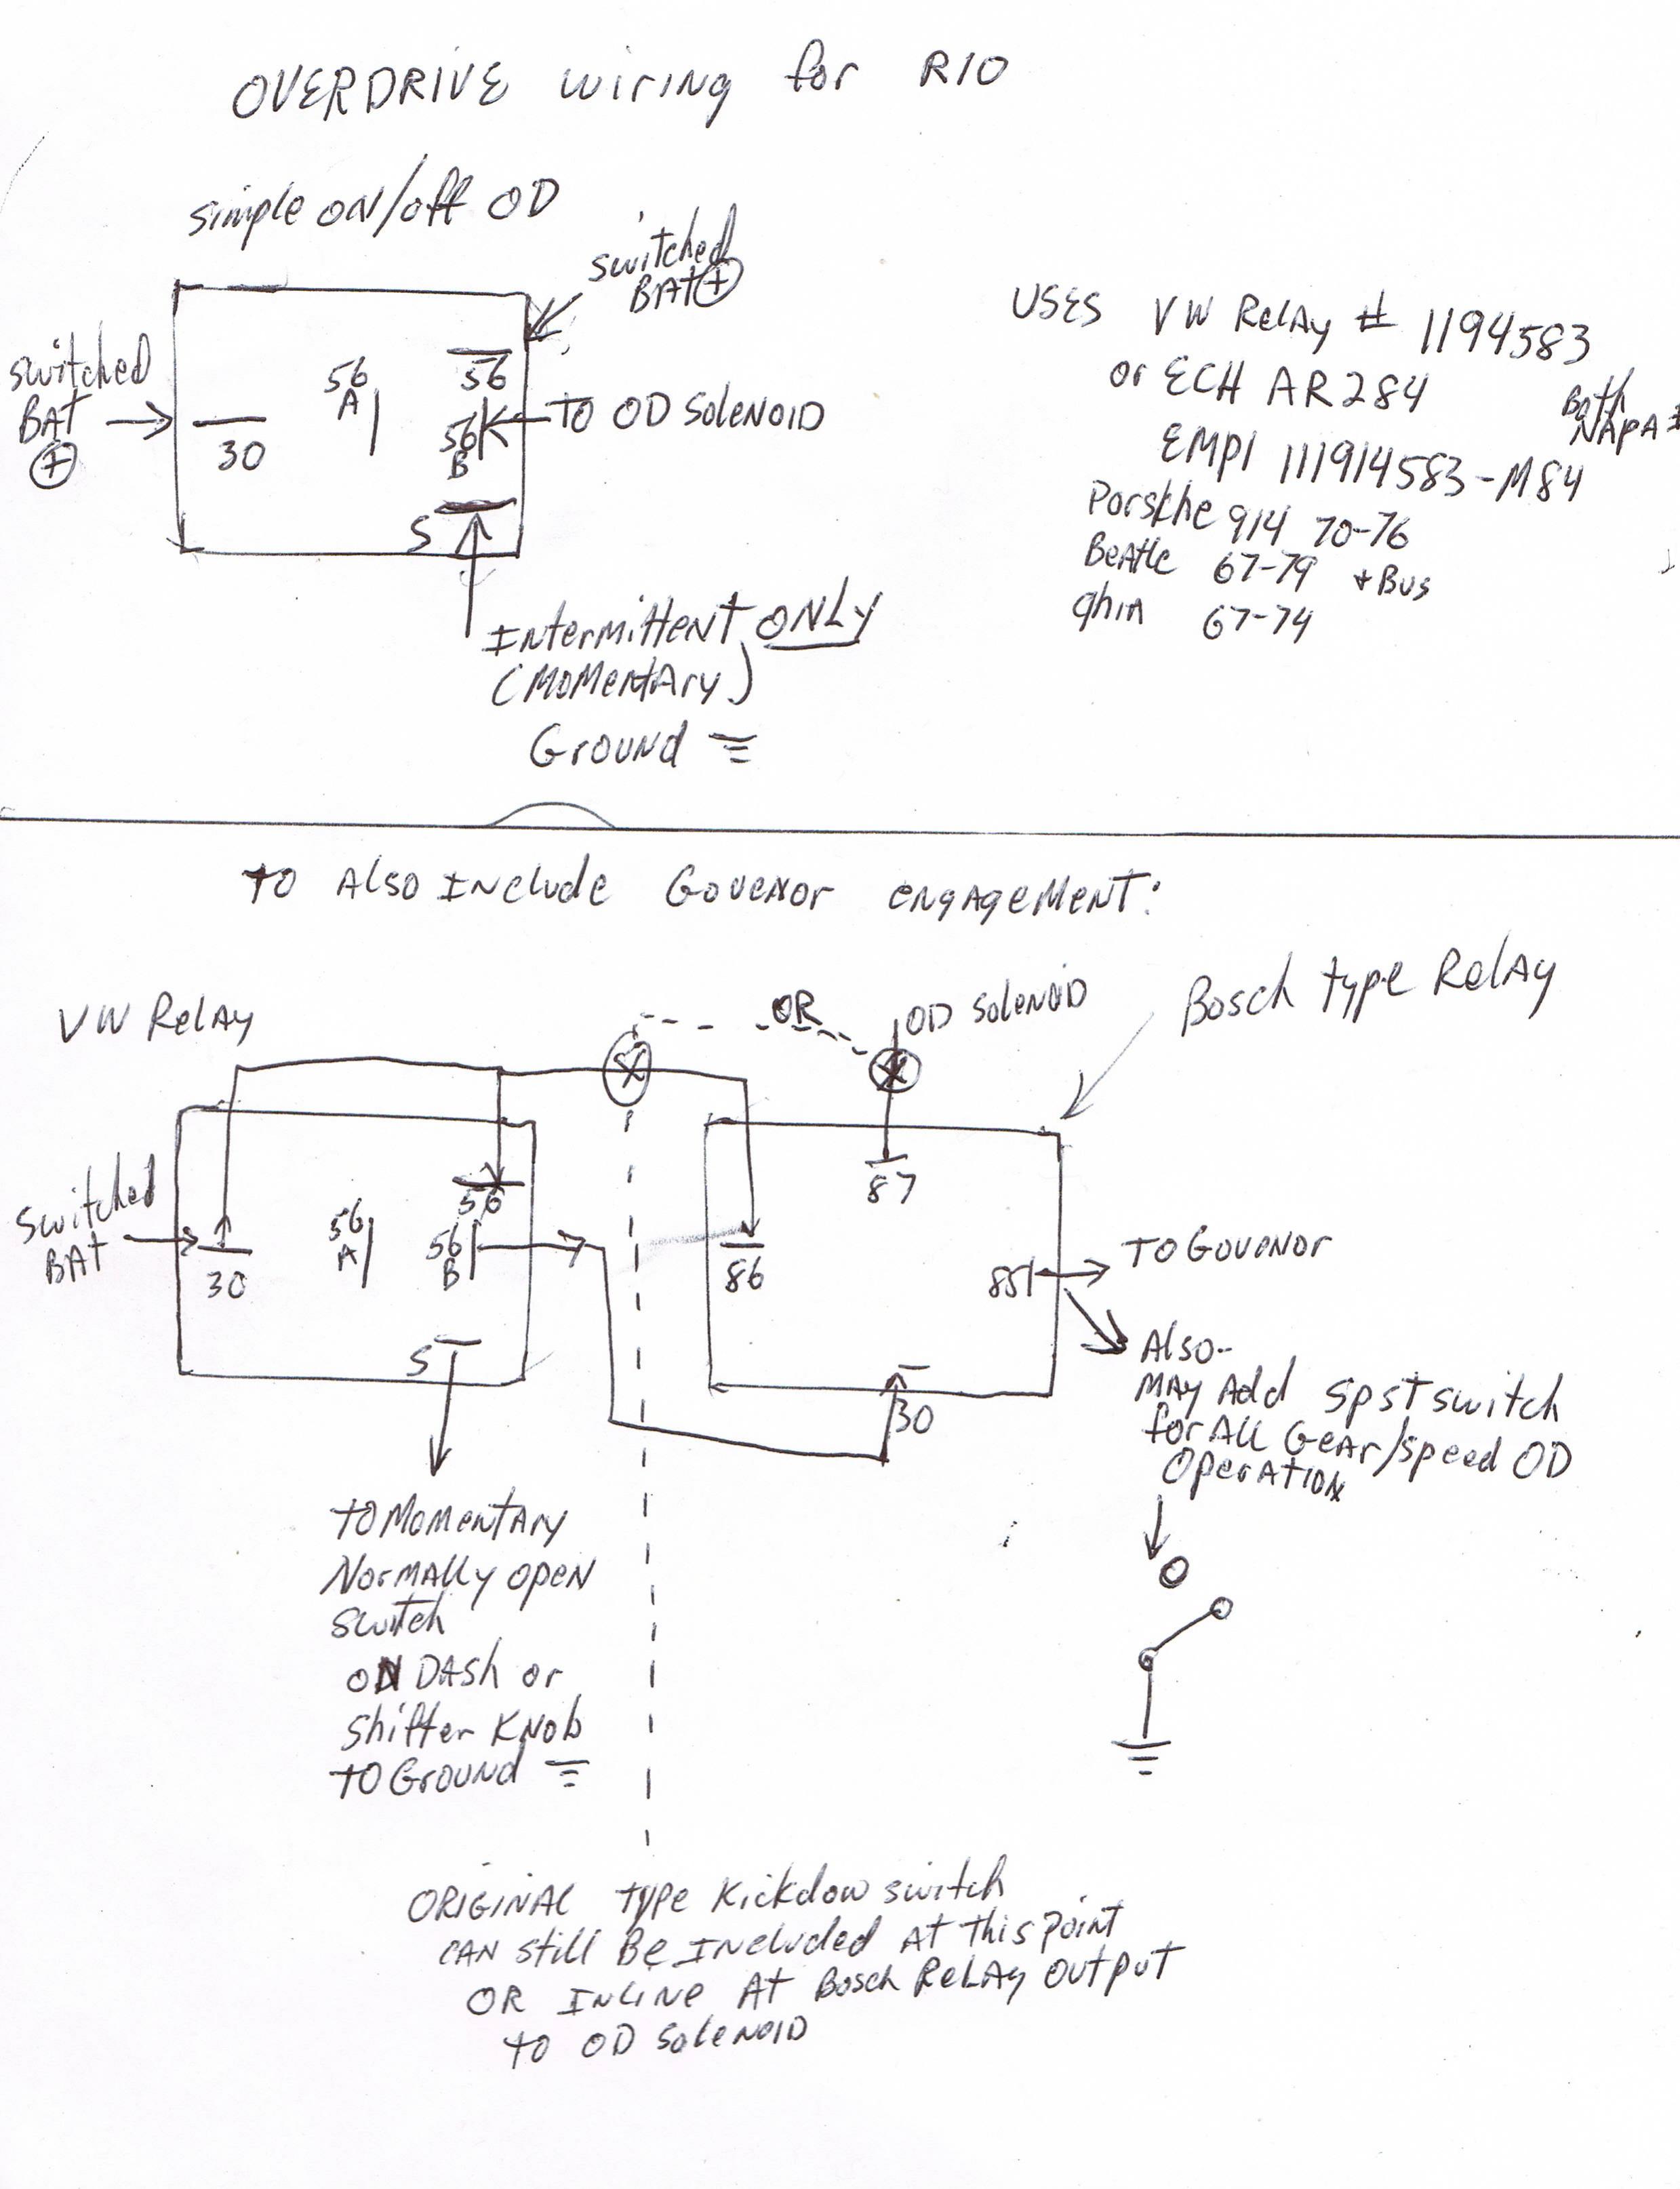 OVERDRIVE wiring for R10
simple on/off OD
switched
BAT +
switched
BAT
+
30
56
A
56
56
B
TO OD SOLENOID
S
INtermittent ONLY
(MOMentAry)
Ground
USES VW RelAy # 1194583
or ECH AR284
Both
NAPA #
EMPI 111914583-M84
Porskhe 914 70-76
BeAtle 67-79 + Bus
ghiA 67-74
TO Also INclude Govenor engAgeMENT:
VW RelAy
OR
OD SoleNOID
Bosch type RelAy
Switched
BAt
30
56
A
56
56
B
S
87
86
85
30
TO GOVENOR
Also--
MAy Add SpST switch
for ALL GeAr/speed OD
OperATION
TO MOMentAry
NorMALLy OPEN
Switch
ON DASh or
Shifter KNob
TO Ground
ORIGINAL Type Kickdow switch
CAN still Be INcluded AT this Point
OR INLINE AT Bosch RelAy OUTPUT
TO OD SoleNOID